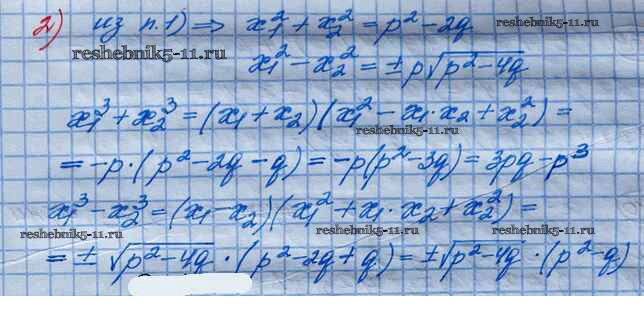 2) из п.1) ⇒ x₁² + x₂² = p² - 2q
reshebnik5-11.ru
x₁² - x₂² = ± p√(p² - 4q)
reshebnik5-11.ru
x₁³ + x₂³ = (x₁ + x₂)(x₁² - x₁·x₂ + x₂²) =
reshebnik5-11.ru
= -p·(p² - 2q - q) = -p(p² - 3q) = 3pq - p³
reshebnik5-11.ru
x₁³ - x₂³ = (x₁ - x₂)(x₁² + x₁·x₂ + x₂²) =
reshebnik5-11.ru reshebnik5-11.ru reshebnik5-11.ru
= ± √(p² - 4q)·(p² - 2q + q) = ± √(p² - 4q)·(p² - q)